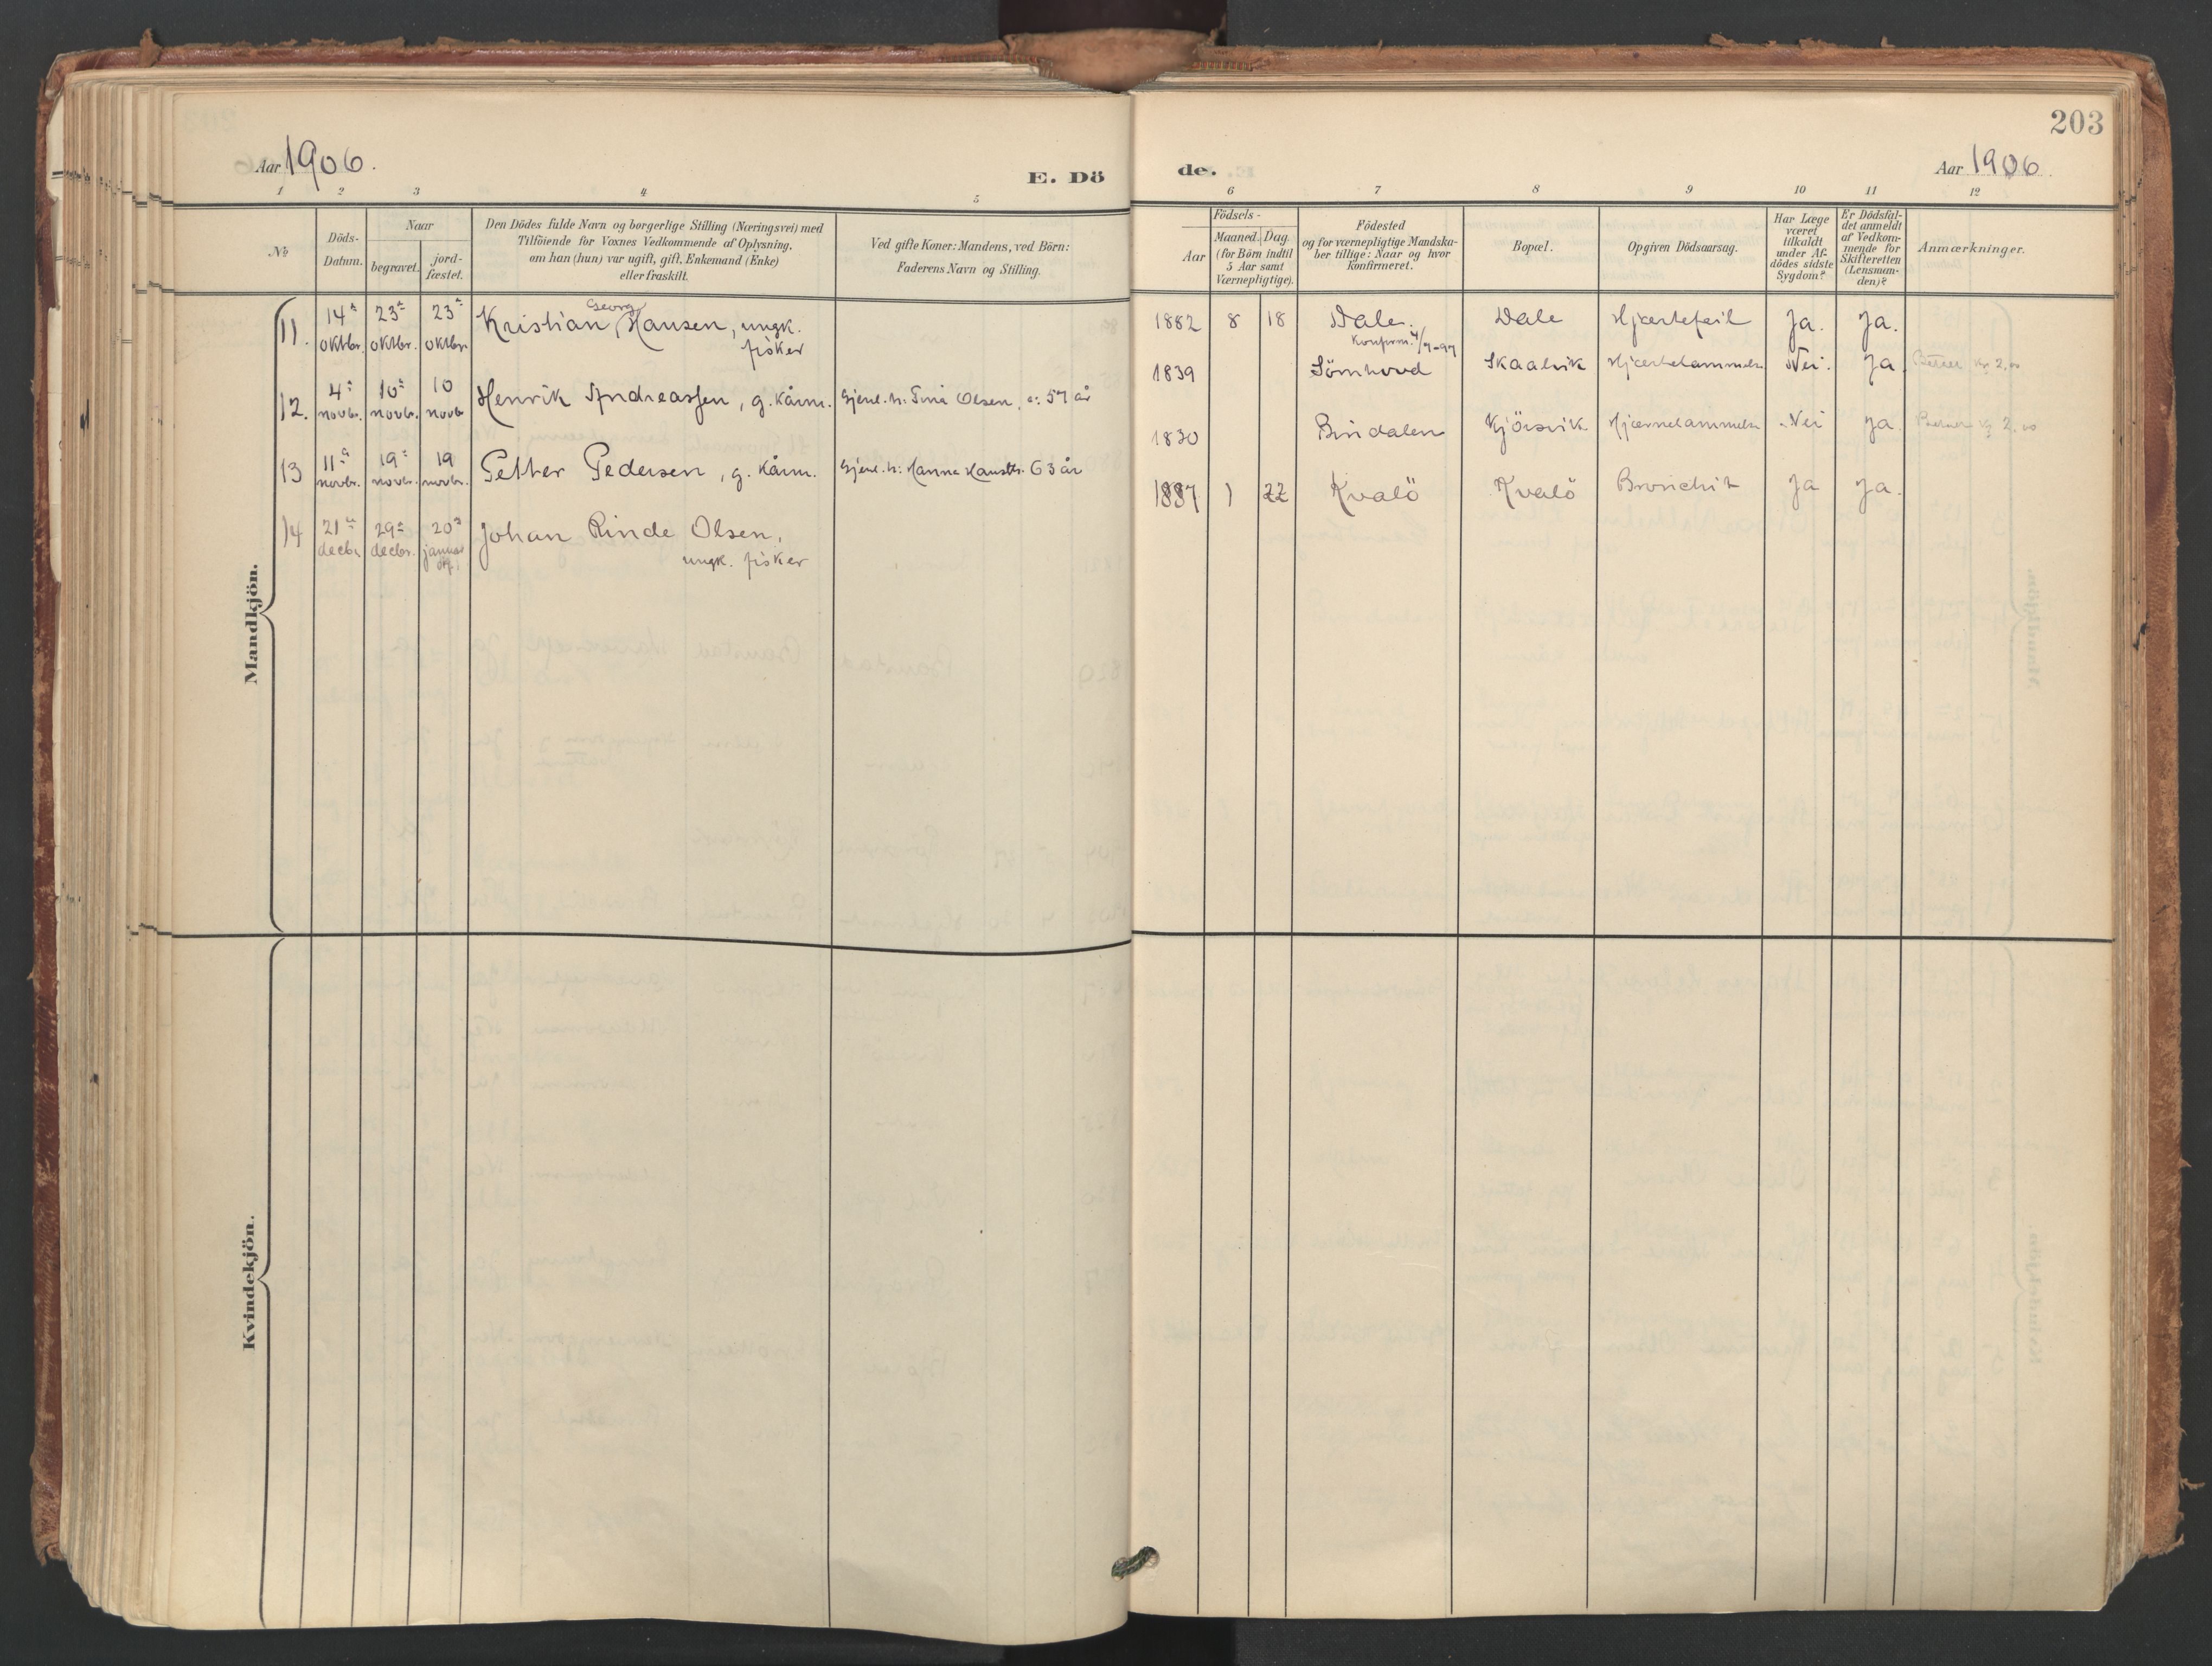 203
Aar 1906.
E. Dö
de.
Aar 1906.
1 2 3 4 5
6 7 8 9 10 11 12
No
Döds-
Datum.
Naar
begravet.
jord-
fæstet.
Den Dödes fulde Navn og borgerlige Stilling (Næringsvei) med
Tilföiende for Voxnes Vedkommende af Oplysning,
om han (hun) var ugift, gift, Enkemand (Enke)
eller fraskilt.
Ved gifte Koner: Mandens, ved Börn:
Faderens Navn og Stilling.
Födsels-
Aar
Maaned. Dag.
(for Börn indtil
5 Aar samt
Værnepligtige).
Födested
og for værnepligtige Mandska-
ber tillige: Naar og hvor
konfirmeret.
Bopæl.
Opgiven Dödsaarsag.
Har Læge
været
tilkaldt
under Af-
dödes sidste
Sygdom?
Er Dödsfal-
det anmeldt
af Vedkom-
mende for
Skifteretten
(Lensman-
den)?
Anmærkninger.
Mandkjön.
11. 14de oktbr. 23de oktbr. 23de oktbr. Kristian Georg Hansen, ungk.
fisker
12. 4de novbr. 10de novbr. 10 novbr Henrik Andreassen, g. kårm. Olsen, 57 år
13 11te novbr. 19de novbr. 19 novbr. Petter Pedersen, g. kårm. Hanna 63 år
14 21de decbr. 29de decbr. 20de januar Johan Rinde Olsen,
ungk. fisker
1882 8 18 Dale. Dale Hjertefeil Ja. Ja.
Konfirm. 4/7-97
1839 Sömhovd Skaalvik Nei. Ja. Kr 2,00
1830 Bindalen Kjörsvik Nei Ja. Kr 2,00
1887 1 22 Kvalö Kvalö Bronchit Ja Ja.
Kvindekjön.